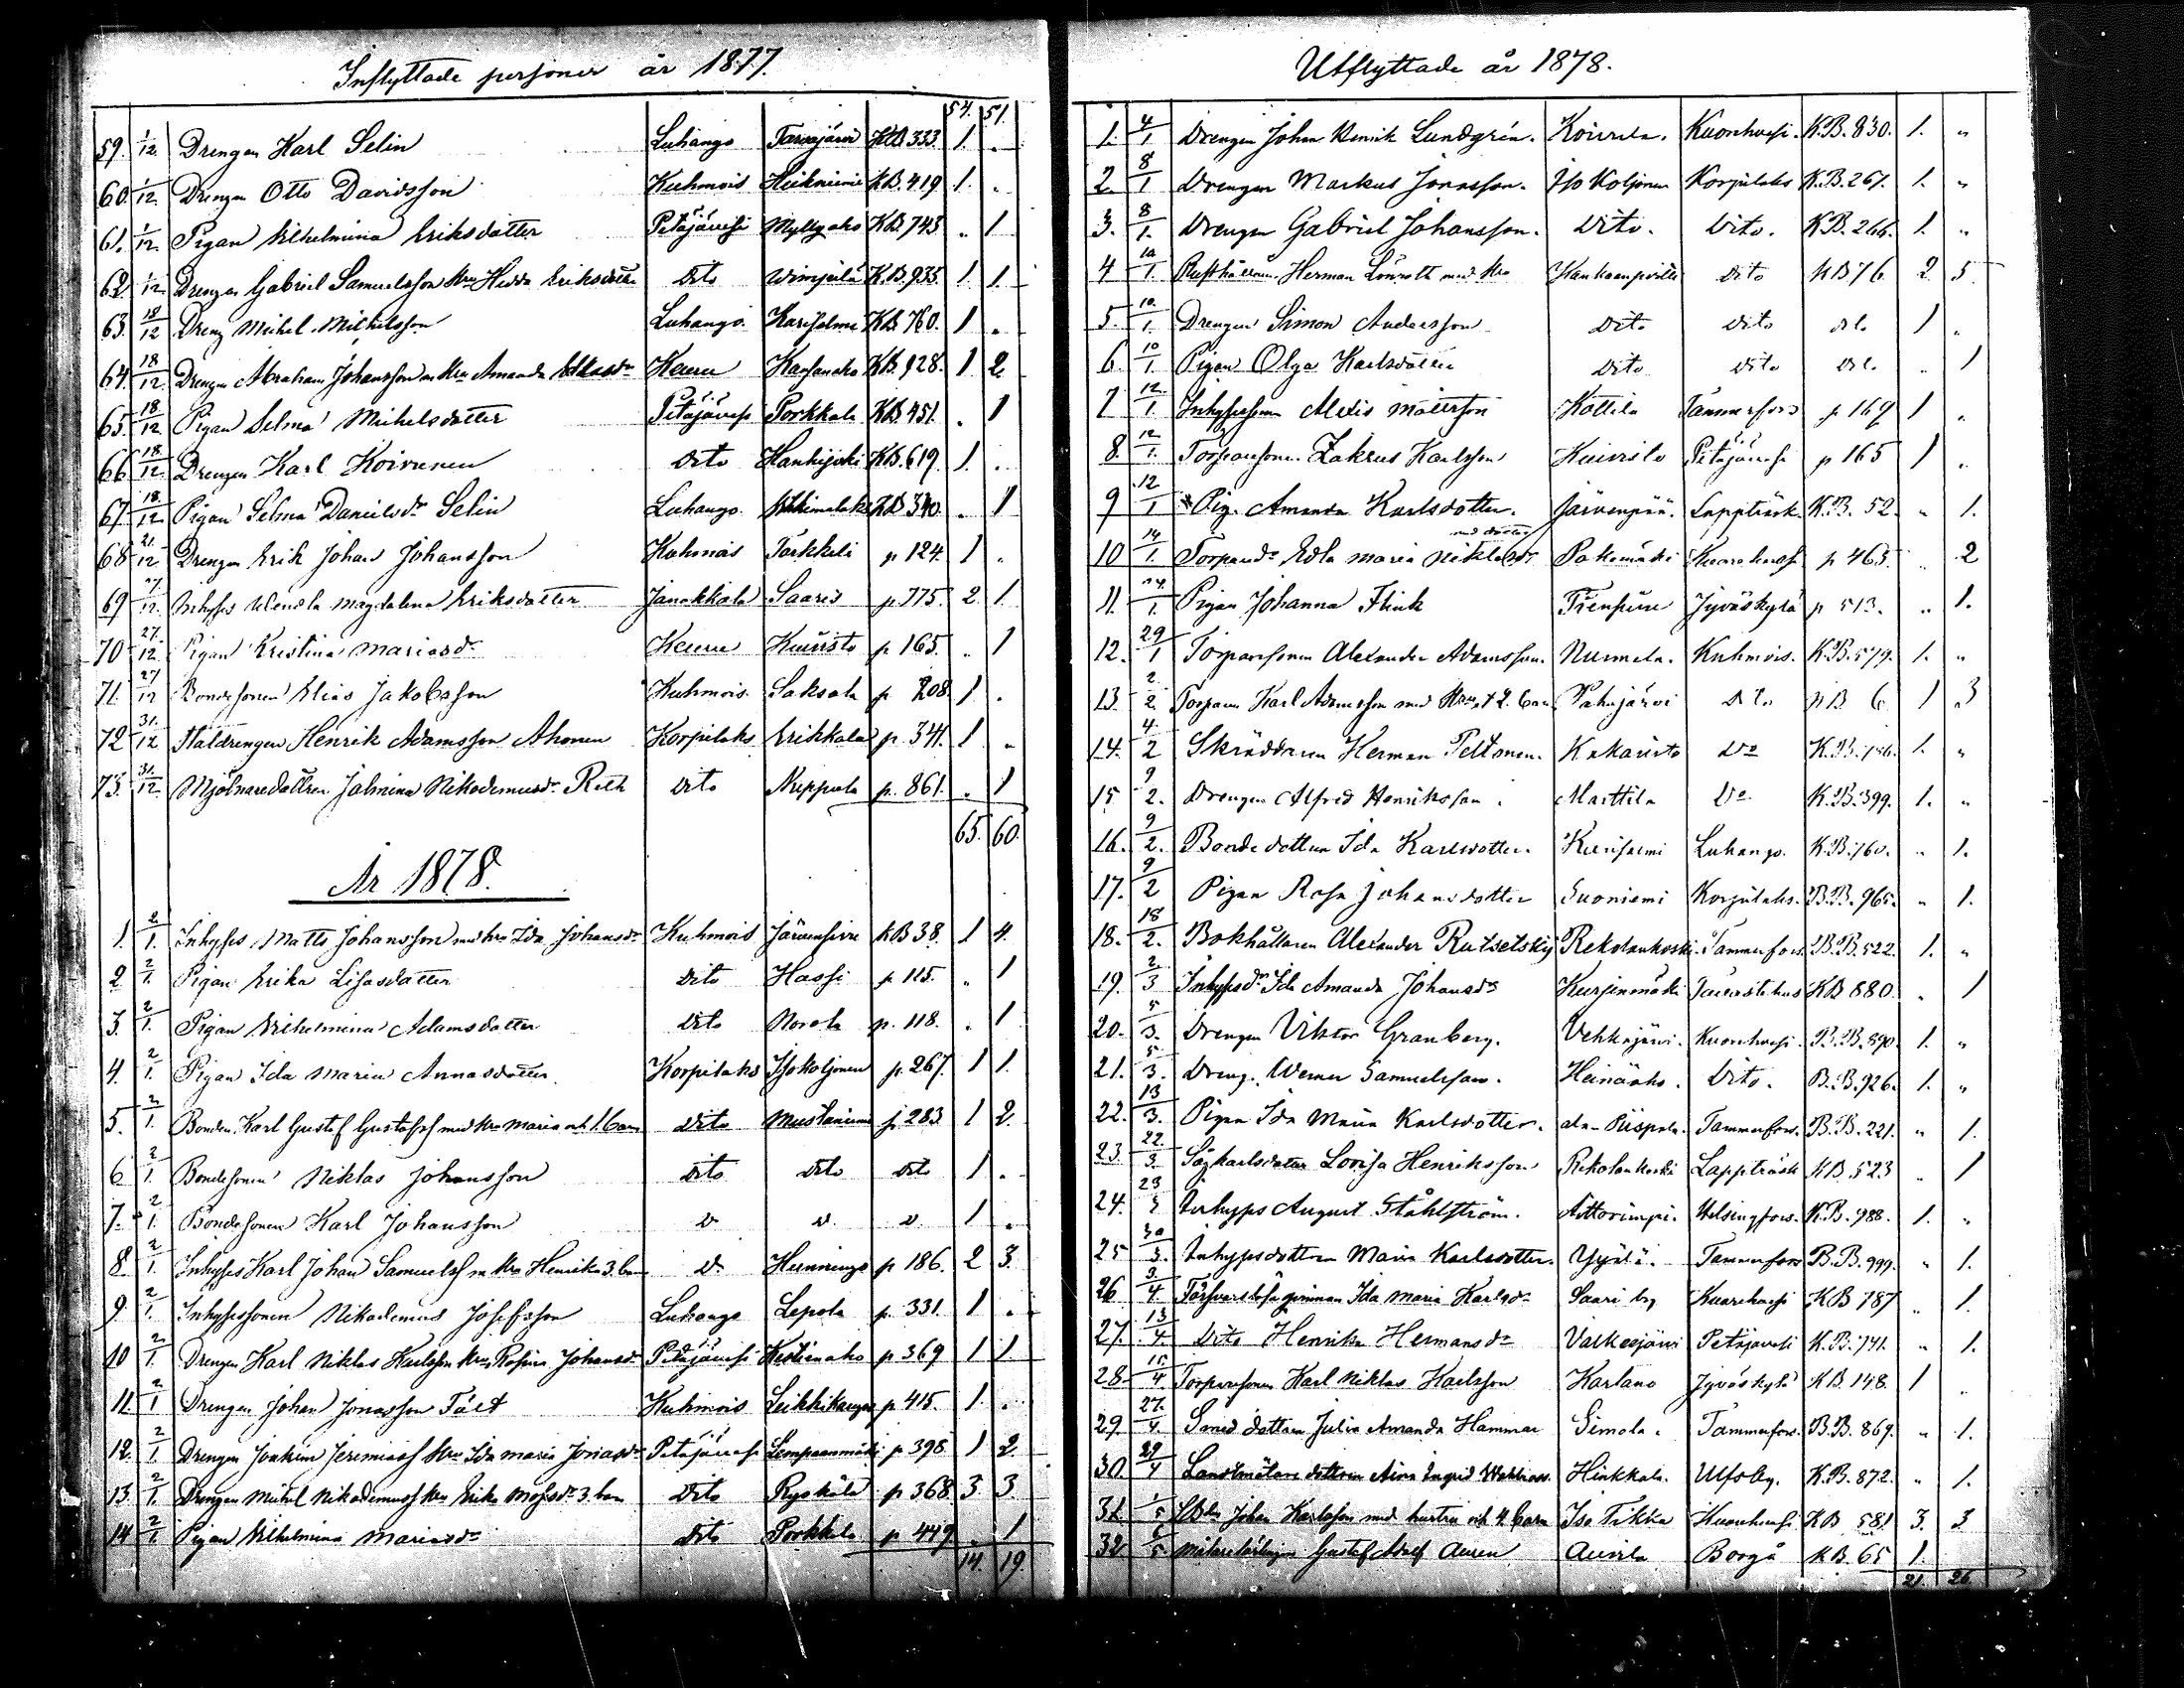 Inflyttade personer år 1877.
54. 51.
59. 1/12 Drengen Karl Selin Luhango KB 333 1 .
60. 1/12 Drengen Otto Davidsson Kuhmois KB. 419 1. .
61. 1/12 Pigan Wilhelmina Eriksdotter Petäjävesi Myllyaho KB 743 . 1
62. 1/12 Drengen Gabriel Samuelsson Hru Hedda Eriksdotter dito K.B. 935. 1. 1.
63. 18/12 Dreng Mikel Mikkelsson Luhango. Karisalmi KB 760. 1 .
64. 18/12 Drengen Abraham Johansson m Hru Amanda Keuru Kansanaho KB 928. 1 2
65. 18/12 Pigan Selma Mikelsdotter Petäjävesi Porkkala KB 451. . 1
66. 18/12 Drengen Karl Koivunen dito Hankijoki KB. 619. 1. .
67. 18/12 Pigan Selma Danielsdr Selin Luhango KB 340. . 1
68. 21/12 Drengen Erik Johan Johansson Kuhmois Tarkkili p 124. 1 .
69. 27/12 Inhyses Magdalena Eriksdotter Janakkala Saaris p 775. 2. 1.
70. 27/12 Pigan Kristina Mariasdr Keuru Kuiristo p 165. . 1
71. 27/12 Bondesonen Elias Jakobsson Kuhmois Saksala p 208 1 .
72. 31/12 Staldrengen Henrik Adamsson Ahonen Korpilaks Erikkala p. 341. 1 .
73. 31/12 Mjölnaredottren Jalmina Nikodemusdr Reth dito Nippula p. 861. . 1
65. 60.
År 1878.
1. 2/1. Inhyses Matts Johansson med hru Ida Johansdr Kuhmois KB 38. 1 4.
2. 2/1. Pigan Erika Lisasdotter dito Hassi p. 115. . 1
3. 2/1. Pigan Wilhelmina Adamsdotter dito Norola p. 118. . 1
4. 2/1. Pigan Ida Maria Annasdotter Korpilaks Isokoljonen p. 267. 1 1.
5. 2/1. Bonden Karl Gustaf Gustafss med hru Maria och 1. barn dito Mustaniemi p 283 1 2.
6. 2/1. Bondesonen Niklas Johansson dito dito dito 1 .
7. 2/1. Bondesonen Karl Johansson d. d. d. 1 .
8. 2/1. Inhyses Karl Johan Samuelss m hru Henrika 3. barn d. p 186. 2 3.
9. 2/1. Inhysessonen Nikodemus Josefsson Luhango Lepola p. 331. 1 .
10. 2/1. Drengen Karl Niklas Karlsson hru Rosina Johansdr Petäjävesi p 369 1 1
11. 2/1 Drengen Johan Jonasson Fält Kuhmois Leikkikangas p 415. 1. .
12. 2/1. Drengen Joakim Jeremiass hru Ida Maria Jonasdr Petäjävesi Lempaanmäki p. 398. 1 2.
13. 2/1. Drengen Mikel Nikodemuss hru Erika 3. barn dito Ryskilä p 368 3. 3.
14 2/1. Pigan Wilhelmina Mariasdr dito Porkkala p 449. . 1
14. 19.
Utflyttade år 1878.
1. 4/1 Drengen Johan Henrik Lundgrén. Koivula. Kuorehvesi. K.B. 830. 1. "
2. 8/1 Drengen Markus Jonasson. Iso Koljonen Korpilaks K.B. 267. 1. "
3. 8/1. Drengen Gabriel Johansson. Dito. Dito. K.B. 266. 1. "
4 10/1. Rusthållaren Herman Lönroth med hru dito KB 76. 2 5
5. 10/1. Drengen Simon Andersson dito dito do 1 .
6. 10/1. Pigan Olga Karlsdotter dito dito do . 1
7 12/1. Inhysessonen Alexis Mattsson Kottila Tammerfors p 169 1 .
8. 12/1. Torparesonen Zakeus Karlsson Kuiristo Petäjävesi p 165 1 .
9 12/1 Pig. Amanda Karlsdotter. Järvenpää. Lappträsk. K.B. 52. " 1.
med dotter
10 14/1. Torparedr Edla Maria Niklasdr Kuorehvesi p 463. .. 2
11. 14/1. Pigan Johanna Flink Jyväskylä p 513. .. 1.
12. 29/1 Torparesonen Alexander Adamsson. Nurmela. Kuhmois. K.B. 579. 1. "
13. 2/2 Torparen Karl Adamsson med Hru + 2. barn Pahajärvi do KB 6. 1 3
14. 4/2 Skräddaren Herman Peltonen. Kakaristo Do K.B. 786. 1. "
15 9/2. Drengen Alfred Henriksson. Marttila Do. K.B. 399. 1. "
16. 9/2. Bondedottren Ida Karlsdotter. Karisalmi Luhango. K.B. 760. " 1.
17. 9/2 Pigan Rosa Johansdotter Suoniemi Korpilaks. B.B. 965. " 1.
18. 18/2. Bokhållaren Alexander Rutsetskij Rekolankoski. Tammerfors. B.B. 522. 1. "
19. 2/3 Inhysdr Ida Amanda Johansdr Kurjenmäki Tavastehus KB 880. . 1
20. 5/3. Drengen Viktor Granberg. Vehkajärvi. Kuorehvesi. B.B. 890. 1. "
21. 5/3. Dreng. Werner Samuelsson. Heinäaho. Dito. B.B. 926. 1. "
22. 13/3. Pigan Ida Maria Karlsdotter. ala-Piispala. Tammerfors. B.B. 221. " 1.
23. 22/3. Lovisa Henriksson Rekolankoski Lappträsk KB 523 . 1
24. 23/3 Inhyses August Ståhlström. Helsingfors. K.B. 988. 1. "
25 30/3. Inhysesdottren Maria Karlsdotter. Tammerfors B.B. 999. " 1.
26 3/4 Försvarslösa qvinnan Ida Maria Karlsdr Saari by Kuorehvesi KB 787 . 1.
27. 13/4 Dito Henrika Hermansdr Valkeajärvi Petäjävesi K.B. 741. " 1.
28. 15/4 Torparesonen Karl Niklas Karlsson Karlano Jyväskylä KB. 148. 1 .
29 27/4 Smeddottren Julia Amanda Hammar Simola. Tammerfors. B.B. 869. " 1.
30. 29/4 Landtmätare dottren Aina Ingrid Hinkkala. Ulfsby. K.B. 872. " 1.
31. 1/5 Johan Karlsson med hustru och 4. barn Iso Tikka Kuorehvesi KB 581. 3. 3
32 6/5 Målarelärlingen Gustaf Adolf Auren Auvila Borgå KB. 65 1.
21. 26.